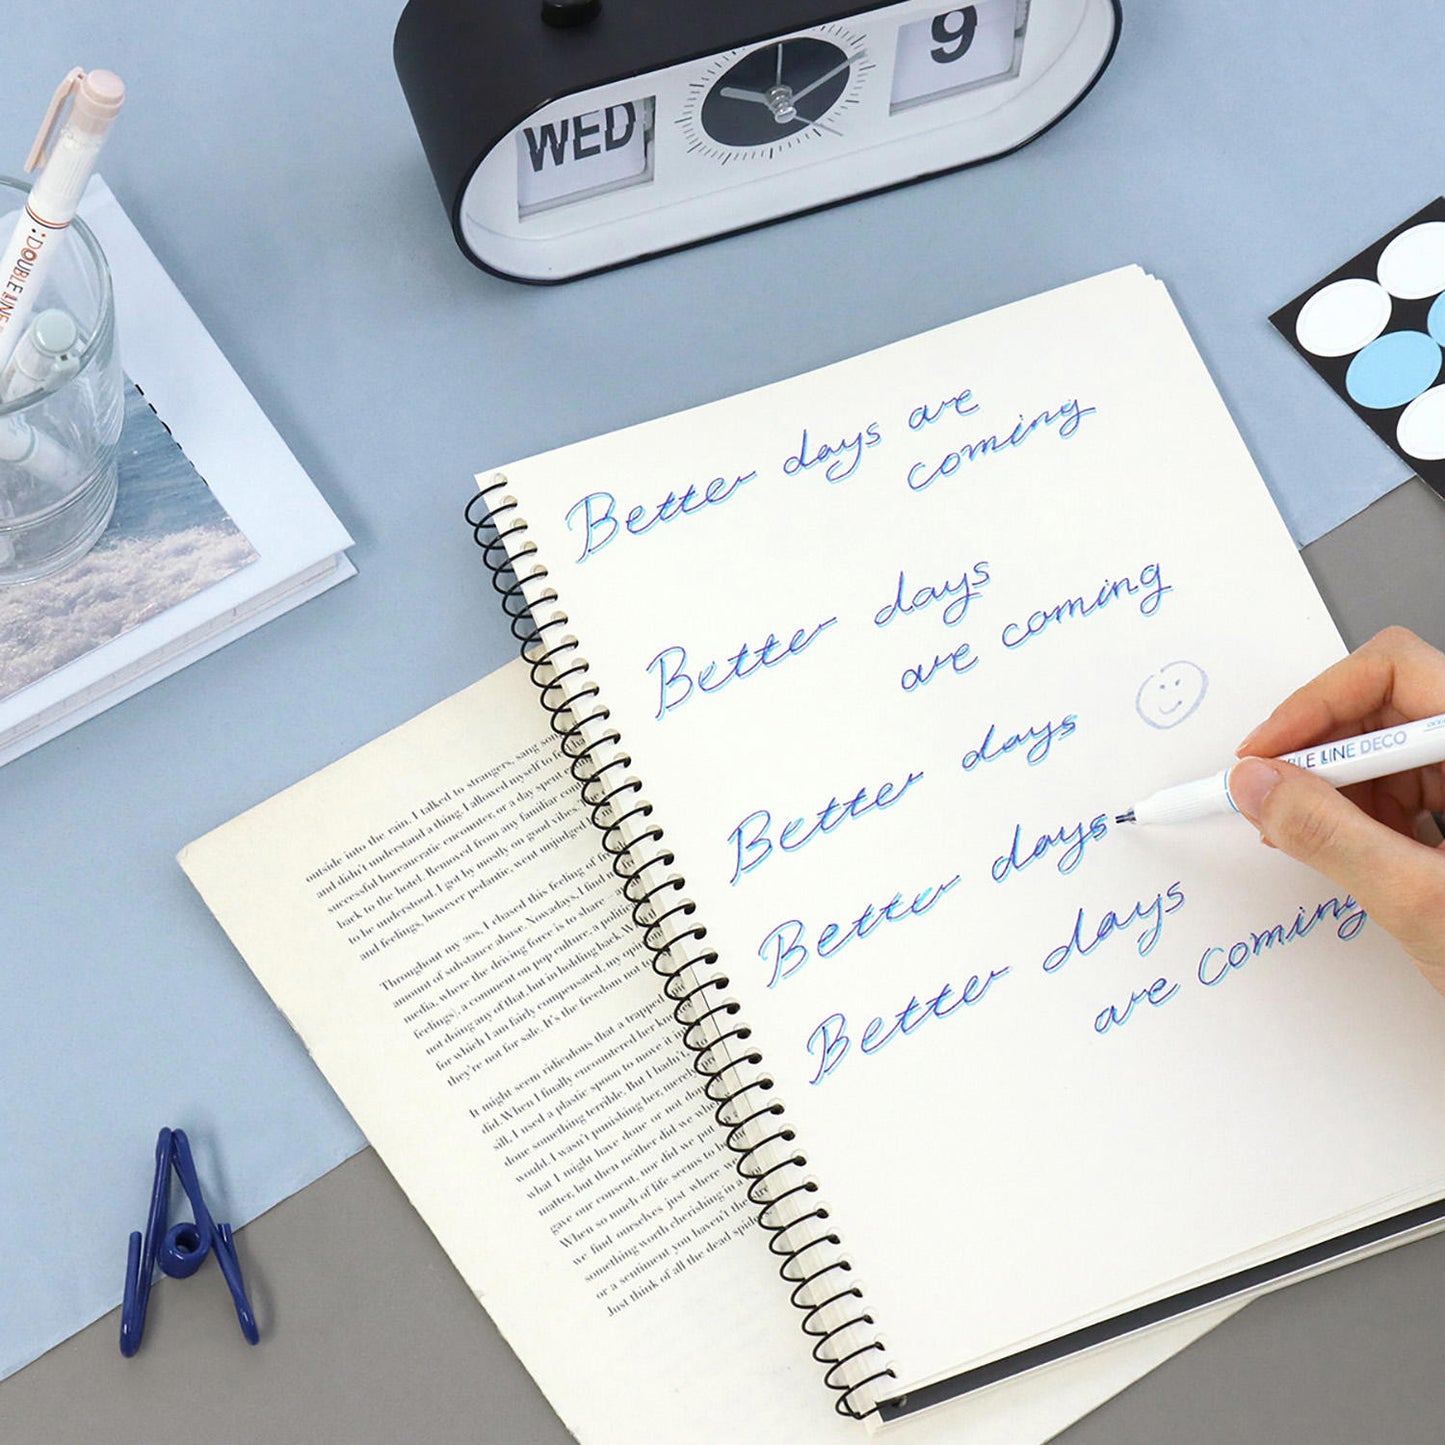 WED
9
:DOUBLE LINE
Better days are
coming
Better days
are coming
Better days
Better days
Better days
are coming
LE LINE DECO
outside into the rain. I talked to strangers, sang
and didn't understand a thing. I allowed myself to
successful bureaucratic encounter, or a day spent
back to the hotel. Removed from any familiar
to be understood, I got by mostly on good vibes.
and feelings, however pedantic, went unjudged
Throughout my 20s, I chased this feeling of
amount of substance abuse. Nowadays, I find
media, where the driving force is to share
feelings), a comment on pop culture, a
not doing any of that, but in holding back.
for which I am fairly compensated, my
they're not for sale. It's the freedom not to
It might seem ridiculous that a trapped
did. When I finally encountered her
sill, I used a plastic spoon to move it
done something terrible. But I hadn't,
would. I wasn't punishing her, merely
what I might have done or not
matter, but then neither did we
gave our consent, nor did we put
When so much of life seems to
we find ourselves just where
something worth cherishing in a
or a sentiment you haven't the
Just think of all the dead